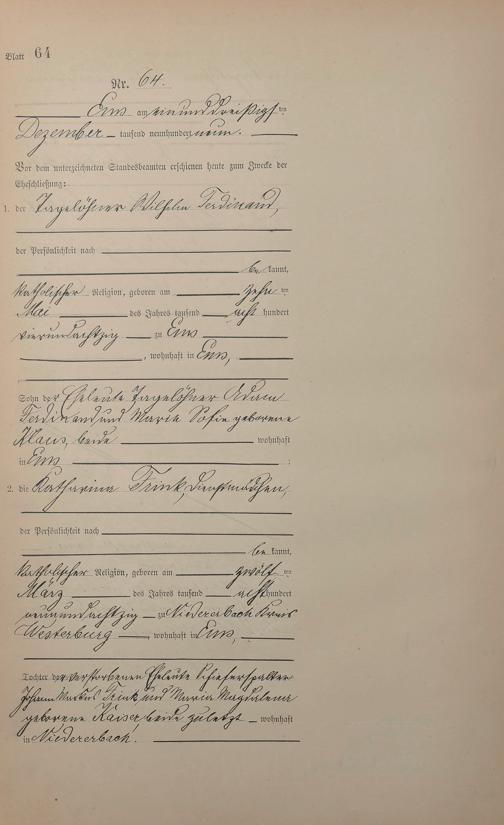 Blatt 64
Nr. 64.
Ems am einunddreißigsten
Dezember tausend neunhundert neun.
Vor dem unterzeichneten Standesbeamten erschienen heute zum Zwecke der
Eheschließung:
1. der Tagelöhner Wilhelm Ferdinand,
der Persönlichkeit nach
be kannt,
katholischer Religion, geboren am zehn ten
Mai des Jahres tausend acht hundert
vierundachtzig zu Ems
, wohnhaft in Ems,
Sohn der Eheleute Tagelöhner Adam
Ferdinand und Maria Sofie geborene
Klaus, beide wohnhaft
in Ems ;
2. die Katharina Frink, Dienstmädchen,
der Persönlichkeit nach
be kannt,
katholischer Religion, geboren am zwölf ten
März des Jahres tausend acht hundert
neunundachtzig zu Niedererbach Kreis
Westerburg , wohnhaft in Ems,
Tochter der verstorbenen Eheleute Schieferspalter
Johann Markus Frink und Maria Magdalena
geborene Kaiser beide zuletzt wohnhaft
in Niedererbach.